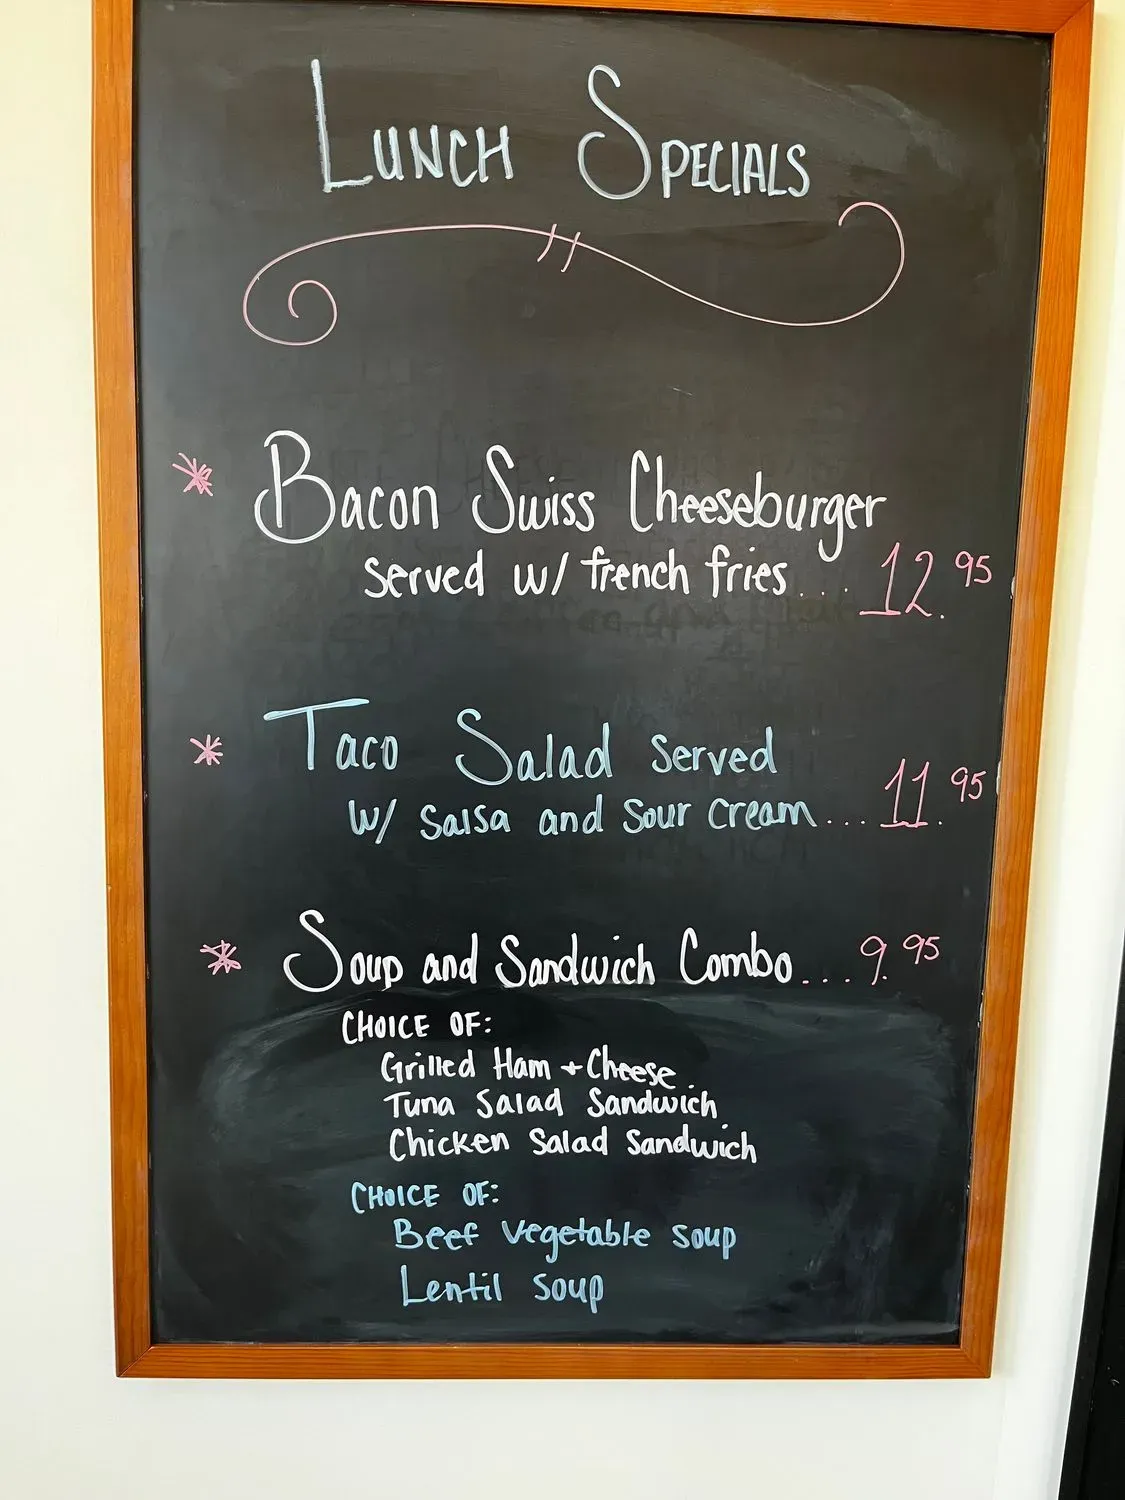 LUNCH SPECIALS
* Bacon Swiss Cheeseburger
served w/ french fries... 12.95
* Taco Salad served
w/ Salsa and Sour Cream... 11.95
* Soup and Sandwich Combo... 9.95
CHOICE OF:
Grilled Ham + Cheese
Tuna Salad Sandwich
Chicken Salad Sandwich
CHOICE OF:
Beef Vegetable soup
Lentil soup